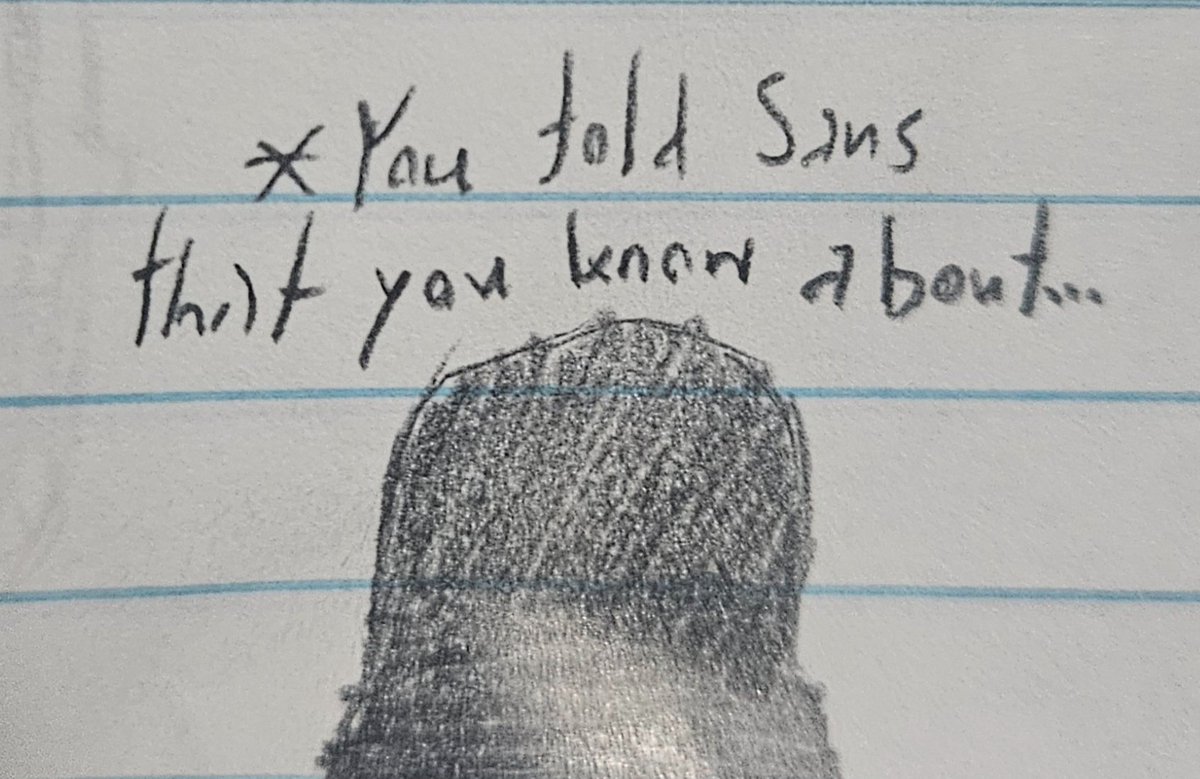 *You told Sans
that you know about...